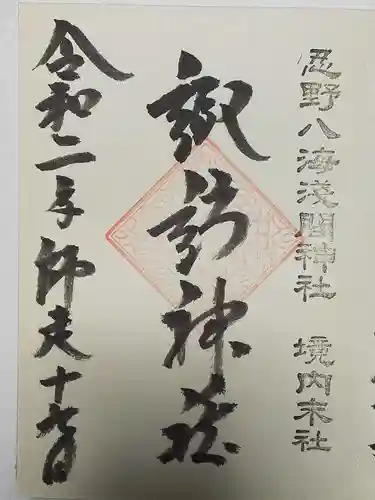 忍野八海浅間神社 境内末社
諏訪神社
令和二年師走十六日